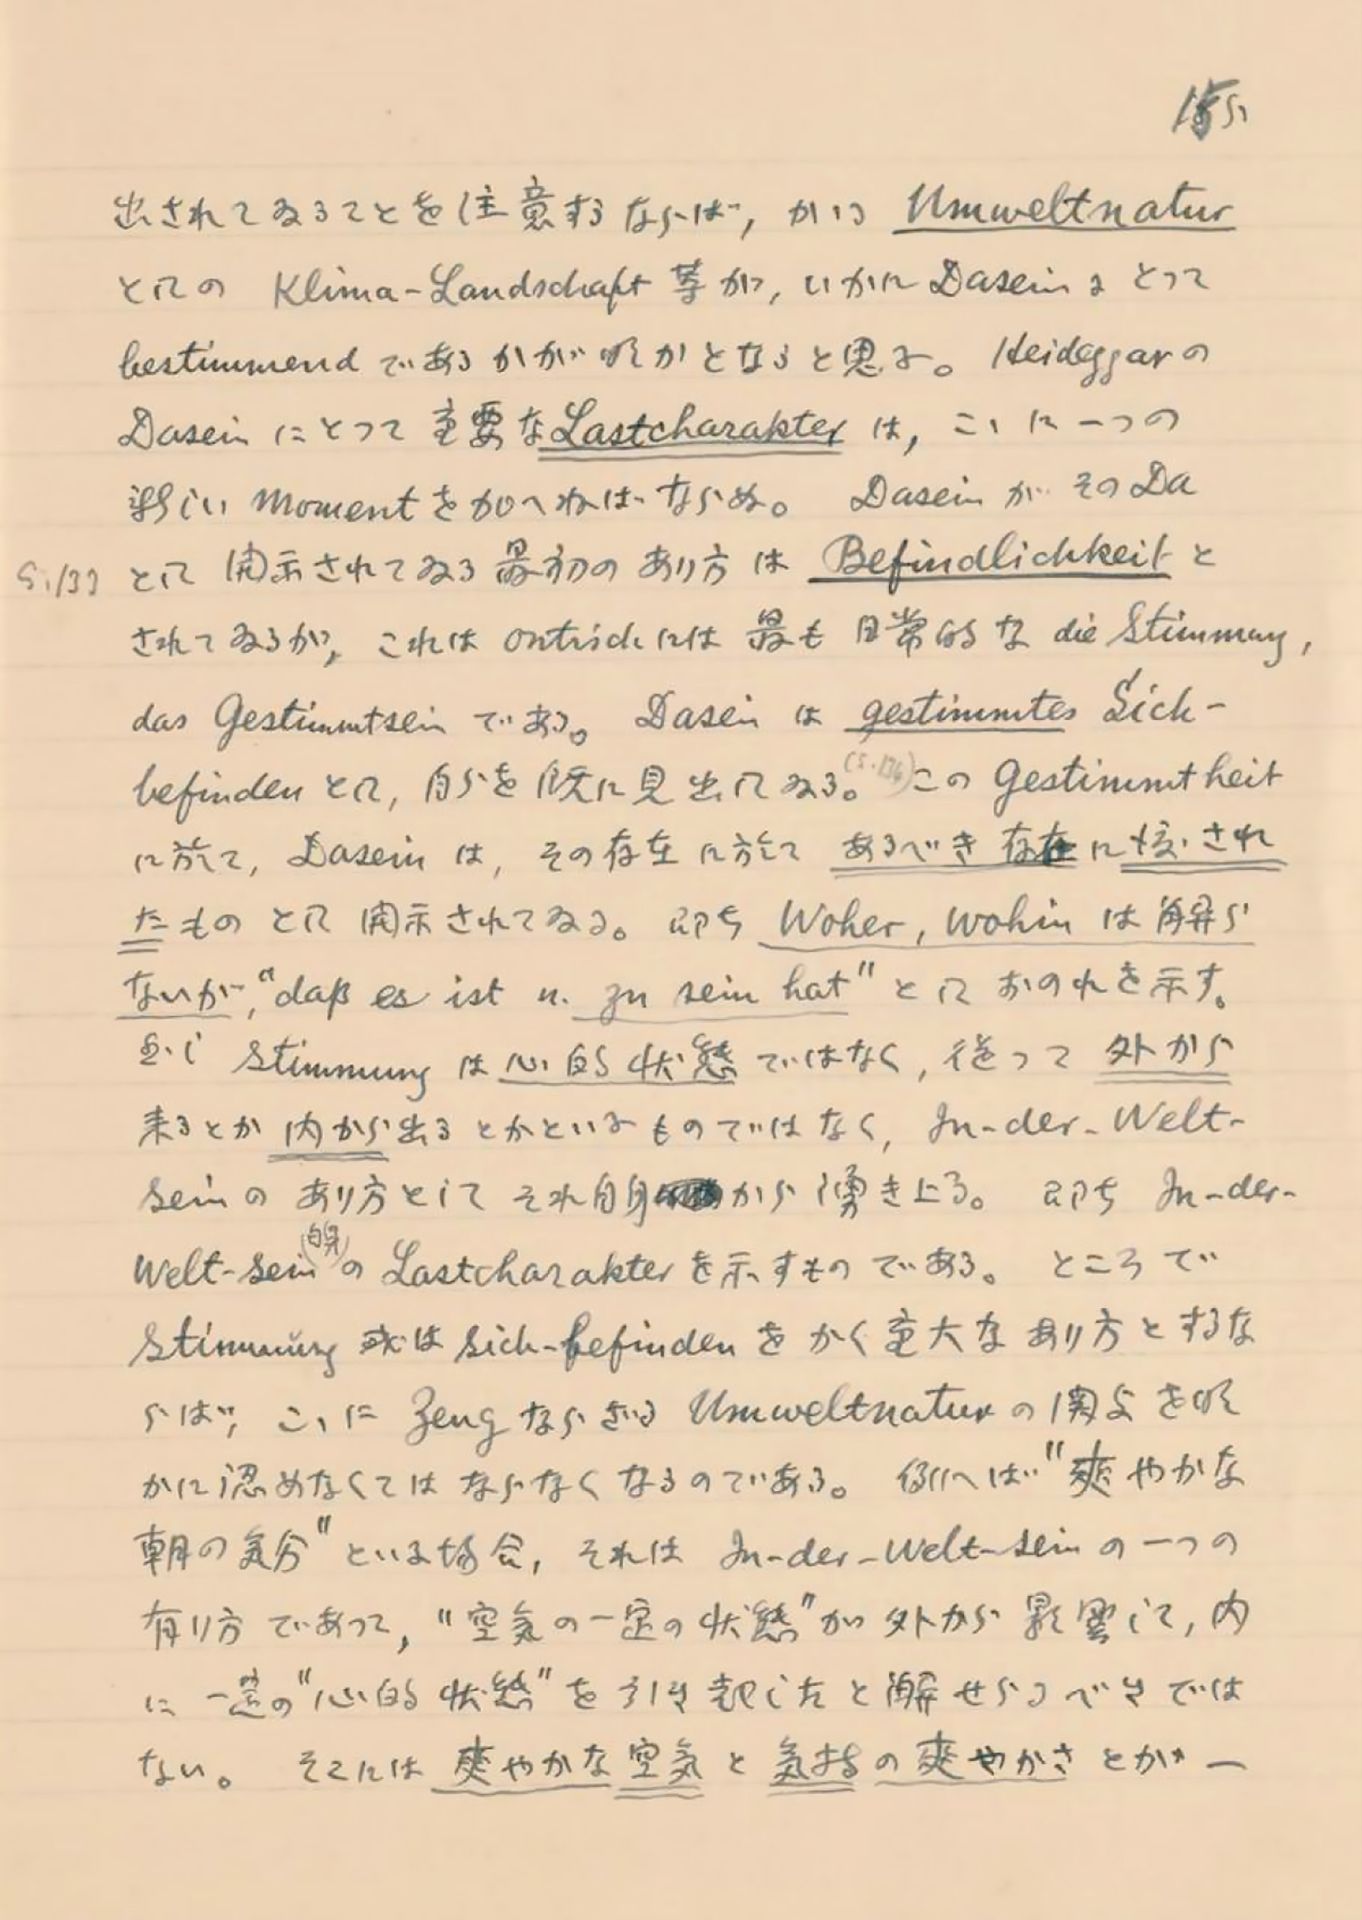 出されてゐることを注意するならば, かゝる Umweltnatur
としての Klima-Landschaft 等が, いかに Dasein にとって
bestimmend であるかが明かとなると思ふ。 Heideggar の
Dasein にとって重要な Lastcharakter は, こゝに一つの
新しい Moment を加へねばならぬ。 Dasein が その Da
S.133 として 開示されてゐる 最初の あり方 は Befindlichkeit と
されてゐるが, これは ontisch には 最も 日常的 な die Stimmung,
das Gestimmtsein である。 Dasein は gestimmtes Sich-
befinden として, 自らを既に見出してゐる。(S.136) この Gestimmtheit
に於て, Dasein は, その存在に於て あるべき存在に委された
たもの として 開示されてゐる。 即ち Woher, Wohin は解ら
ないが, “daß es ist u. zu sein hat” として おのれを示す。
Stimmung は心的状態ではなく, 従って 外から
来るとか 内から出るとかといふものではなく, In-der-Welt-
sein の あり方として それ自身から湧き上る。 即ち In-der-
Welt-sein (自身) の Lastcharakter を示すもの である。 ところで
Stimmung 或は Sich-befinden をかく重大な あり方とするな
らば, こゝに Zeug ならざる Umweltnatur の関与を明
かに認めなくては ならなくなるのである。 例へば “爽やかな
朝の気分” といふ場合, それは In-der-Welt-sein の一つの
有り方であって, “空気の一定の状態” が外から影響して, 内
に一定の “心的状態” を引き起したと解せらるべきでは
ない。 そこには 爽やかな空気と気持の爽やかさとが一